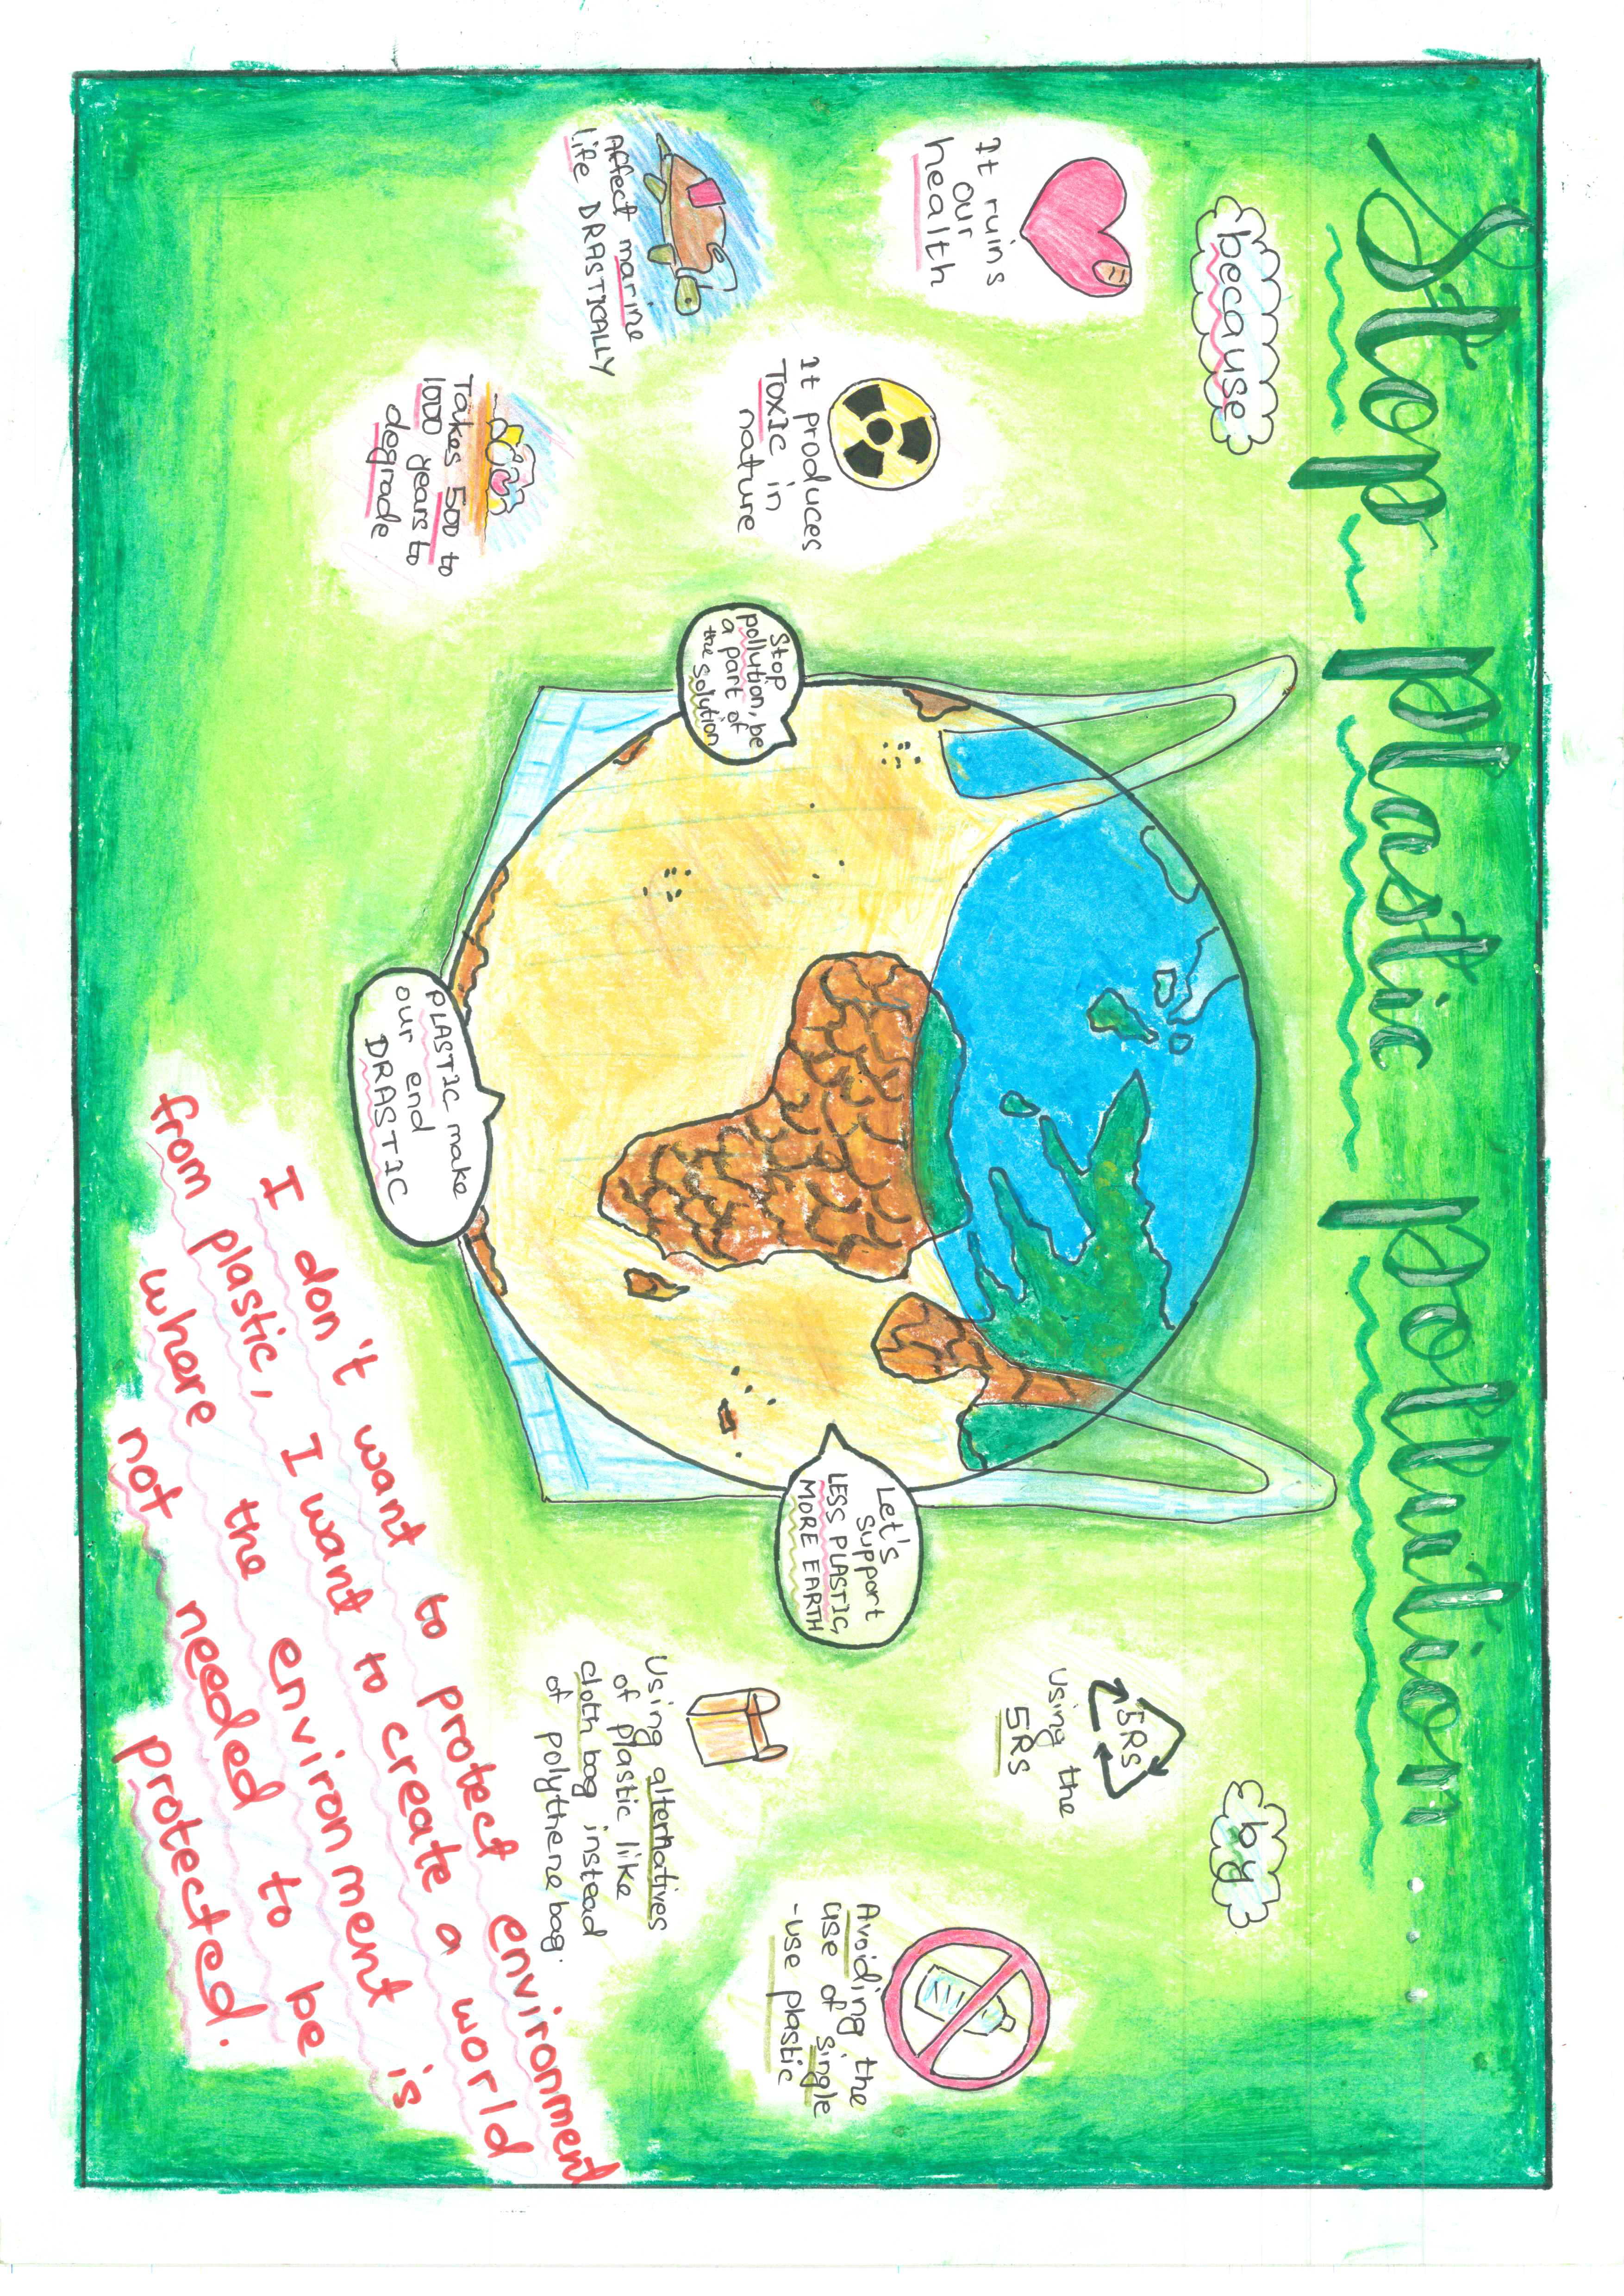 Stop plastic pollution....
because
It ruins
our
health
It produces
Toxic in
nature
Affect marine
life DRASTICALLY
Takes 500 to
1000 years to
degrade
Stop
pollution, be
a part of
the solution
PLASTIC make
our end
DRASTIC
Let's
support
LESS PLASTIC,
MORE EARTH
by
5RS
using the
5RS
Avoiding the
use of single
-use plastic
Using alternatives
of plastic like
cloth bag instead
of polythene bag.
I don't want to protect environment
from plastic, I want to create a world
where the environment is
not needed to be
protected.